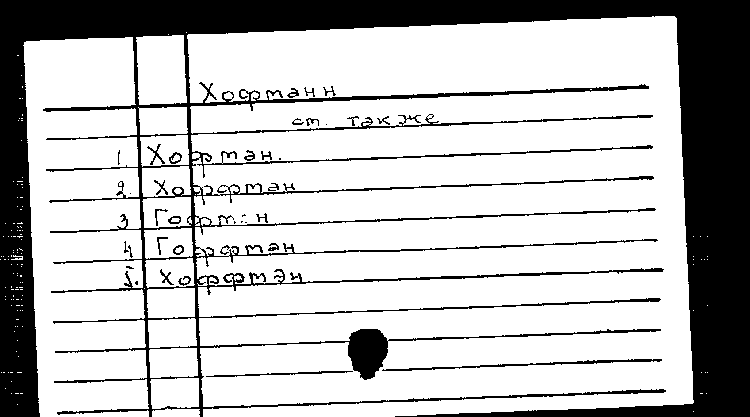 Хофманн
см. также
1. Хофман.
2. Хоффман
3 Гофман
4 Гоффман
5. Хоффмэн